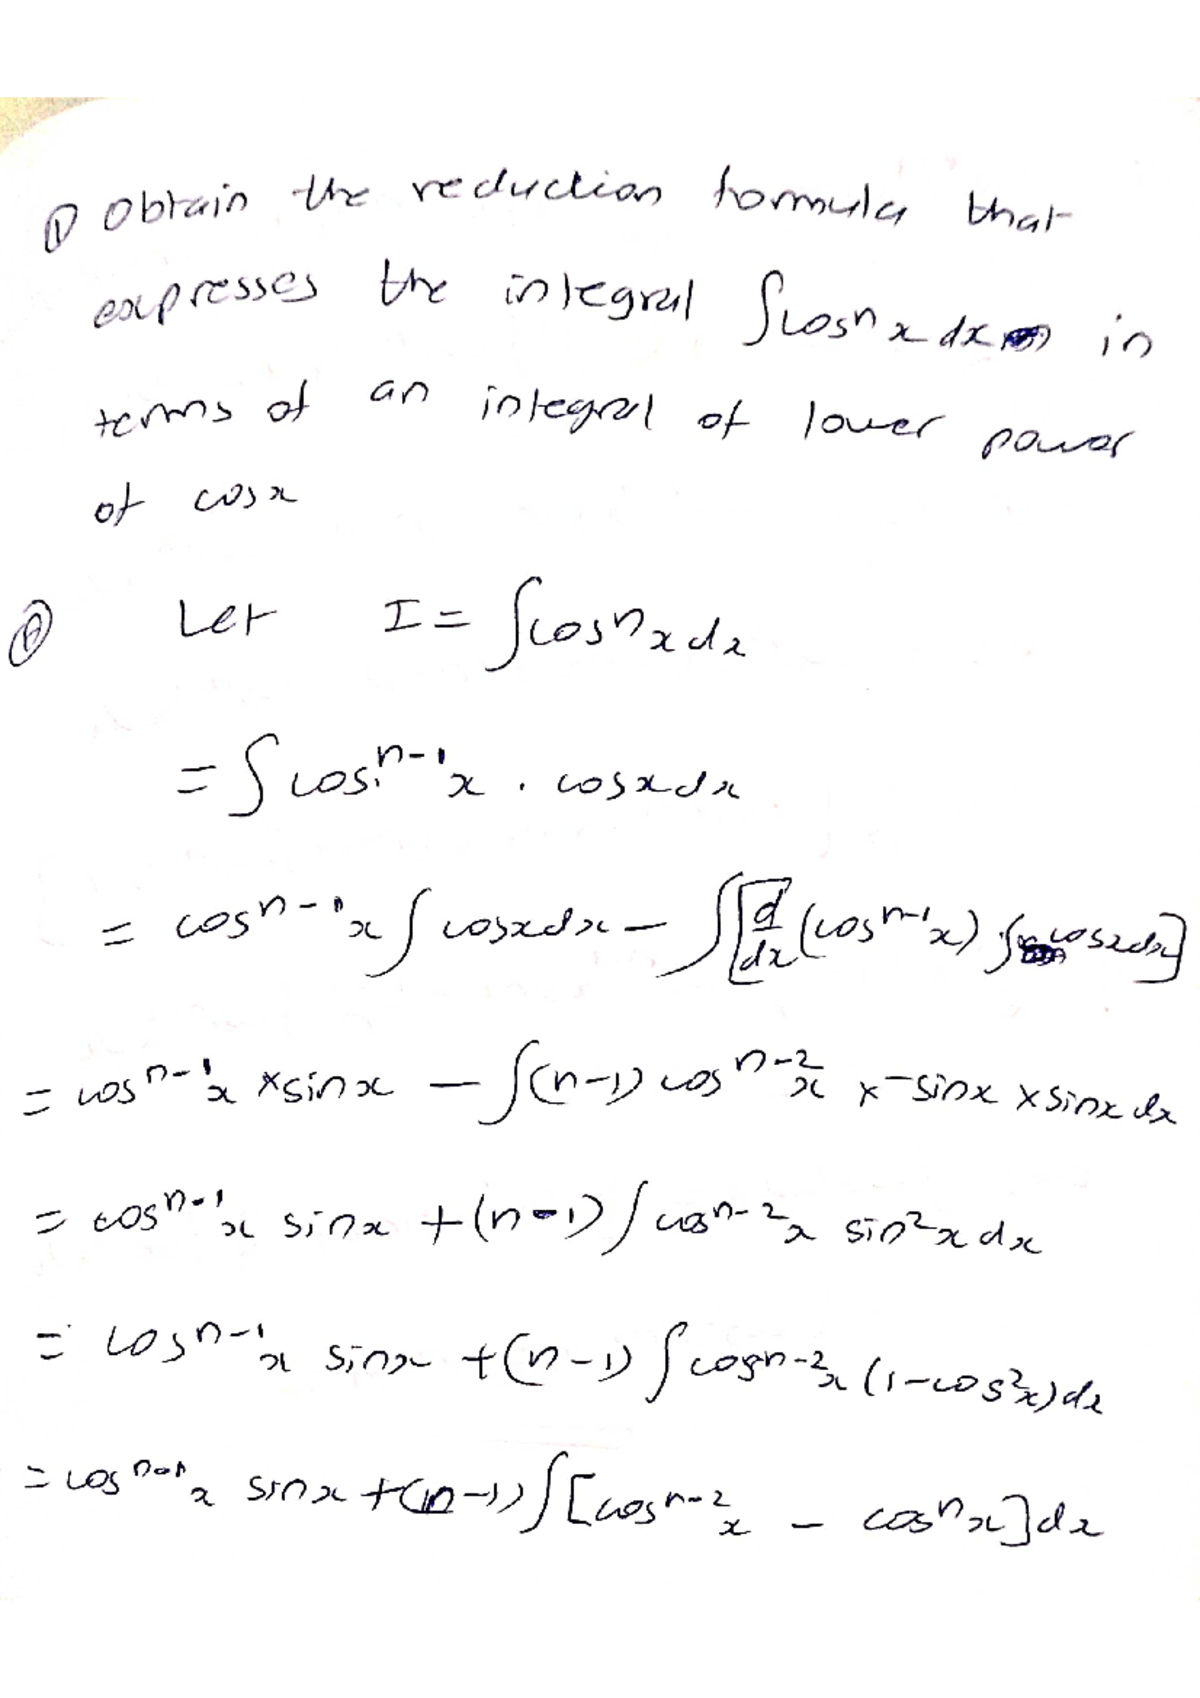 ① Obtain the reduction formula that
expresses the integral ∫cosⁿx dx in
terms of an integral of lower power
of cosx
Let I = ∫cosⁿx dx
= ∫cosⁿ⁻¹x . cosx dx
= cosⁿ⁻¹x ∫cosx dx − ∫[d/dx (cosⁿ⁻¹x) . ∫cosx dx]
= cosⁿ⁻¹x × sinx − ∫(n−1) cosⁿ⁻²x × −sinx × sinx dx
= cosⁿ⁻¹x sinx + (n−1) ∫cosⁿ⁻²x sin²x dx
= cosⁿ⁻¹x sinx + (n−1) ∫cosⁿ⁻²x (1−cos²x) dx
= cosⁿ⁻¹x sinx + (n−1) ∫[cosⁿ⁻²x − cosⁿx] dx